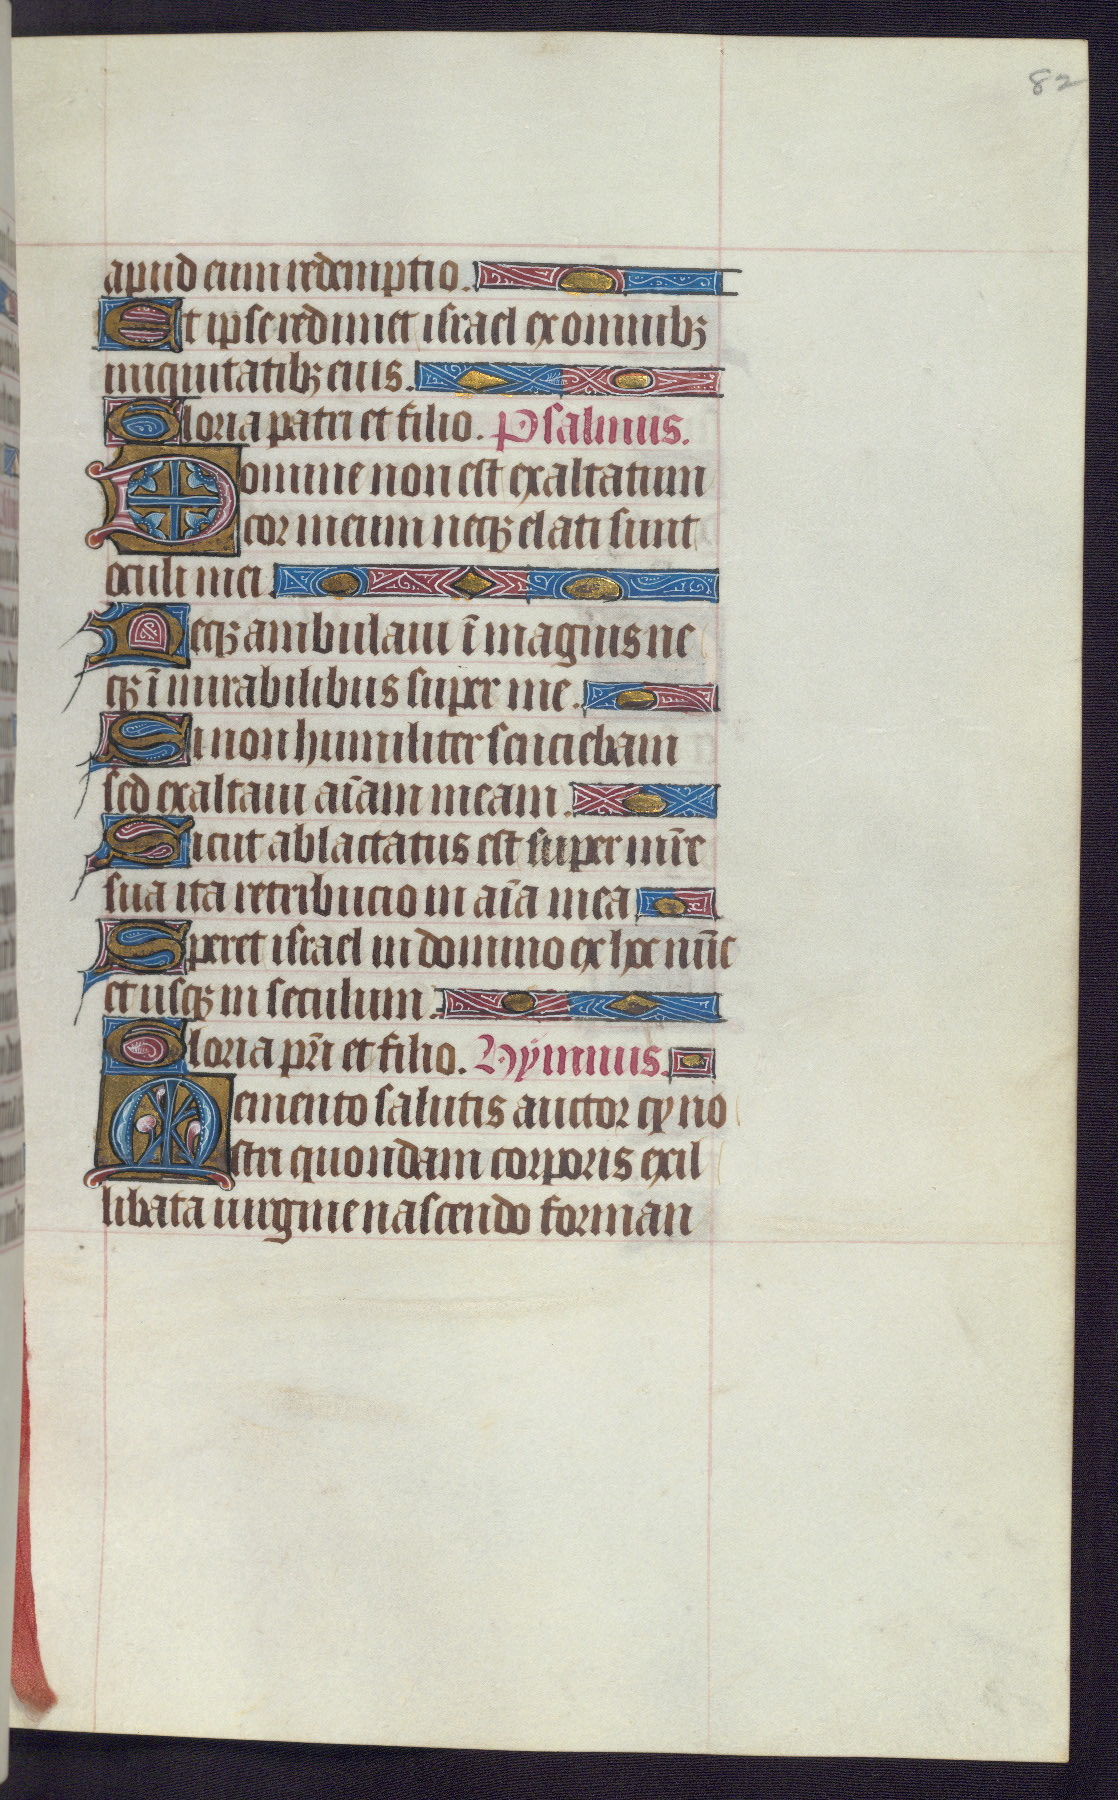 82
apud eum redemptio.
Et ipse redimet israel ex omnibꝫ
iniquitatibꝫ eius.
Gloria patri et filio. Psalmus.
Domine non est exaltatum
cor meum neqꝫ elati sunt
oculi mei.
Neqꝫ ambulaui ī magnis ne
qꝫ ī mirabilibus super me.
Si non humiliter senciebam
sed exaltaui aīam meam.
Sicut ablactatus est super mr̄e
sua ita retribucio in aīa mea
Speret israel in domino ex hoc nūc
et usqꝫ in seculum.
Gloria pr̄i et filio. Hymnus.
Memento salutis auctor qp no
stri quondam corporis exil
libata uirgine nascendo forman